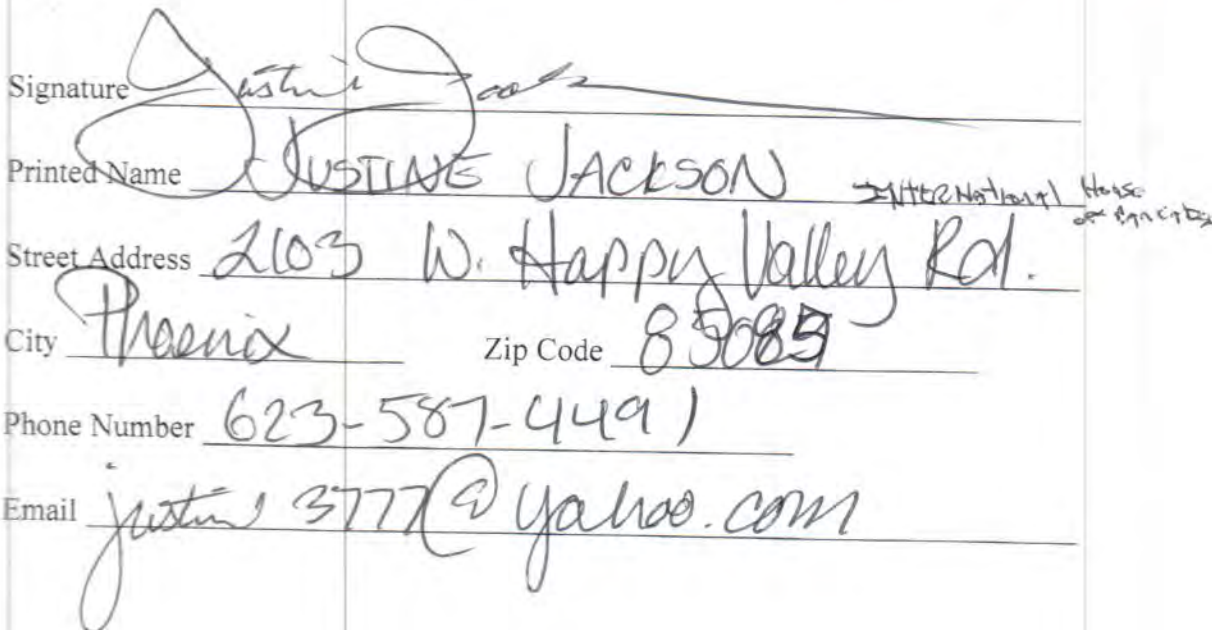 Signature Justine Jack
Printed Name JUSTINE JACKSON INTERNational House
of Pancakes
Street Address 2103 W. Happy Valley Rd.
City Phoenix Zip Code 85085
Phone Number 623-587-4491
Email justine3777@yahoo.com